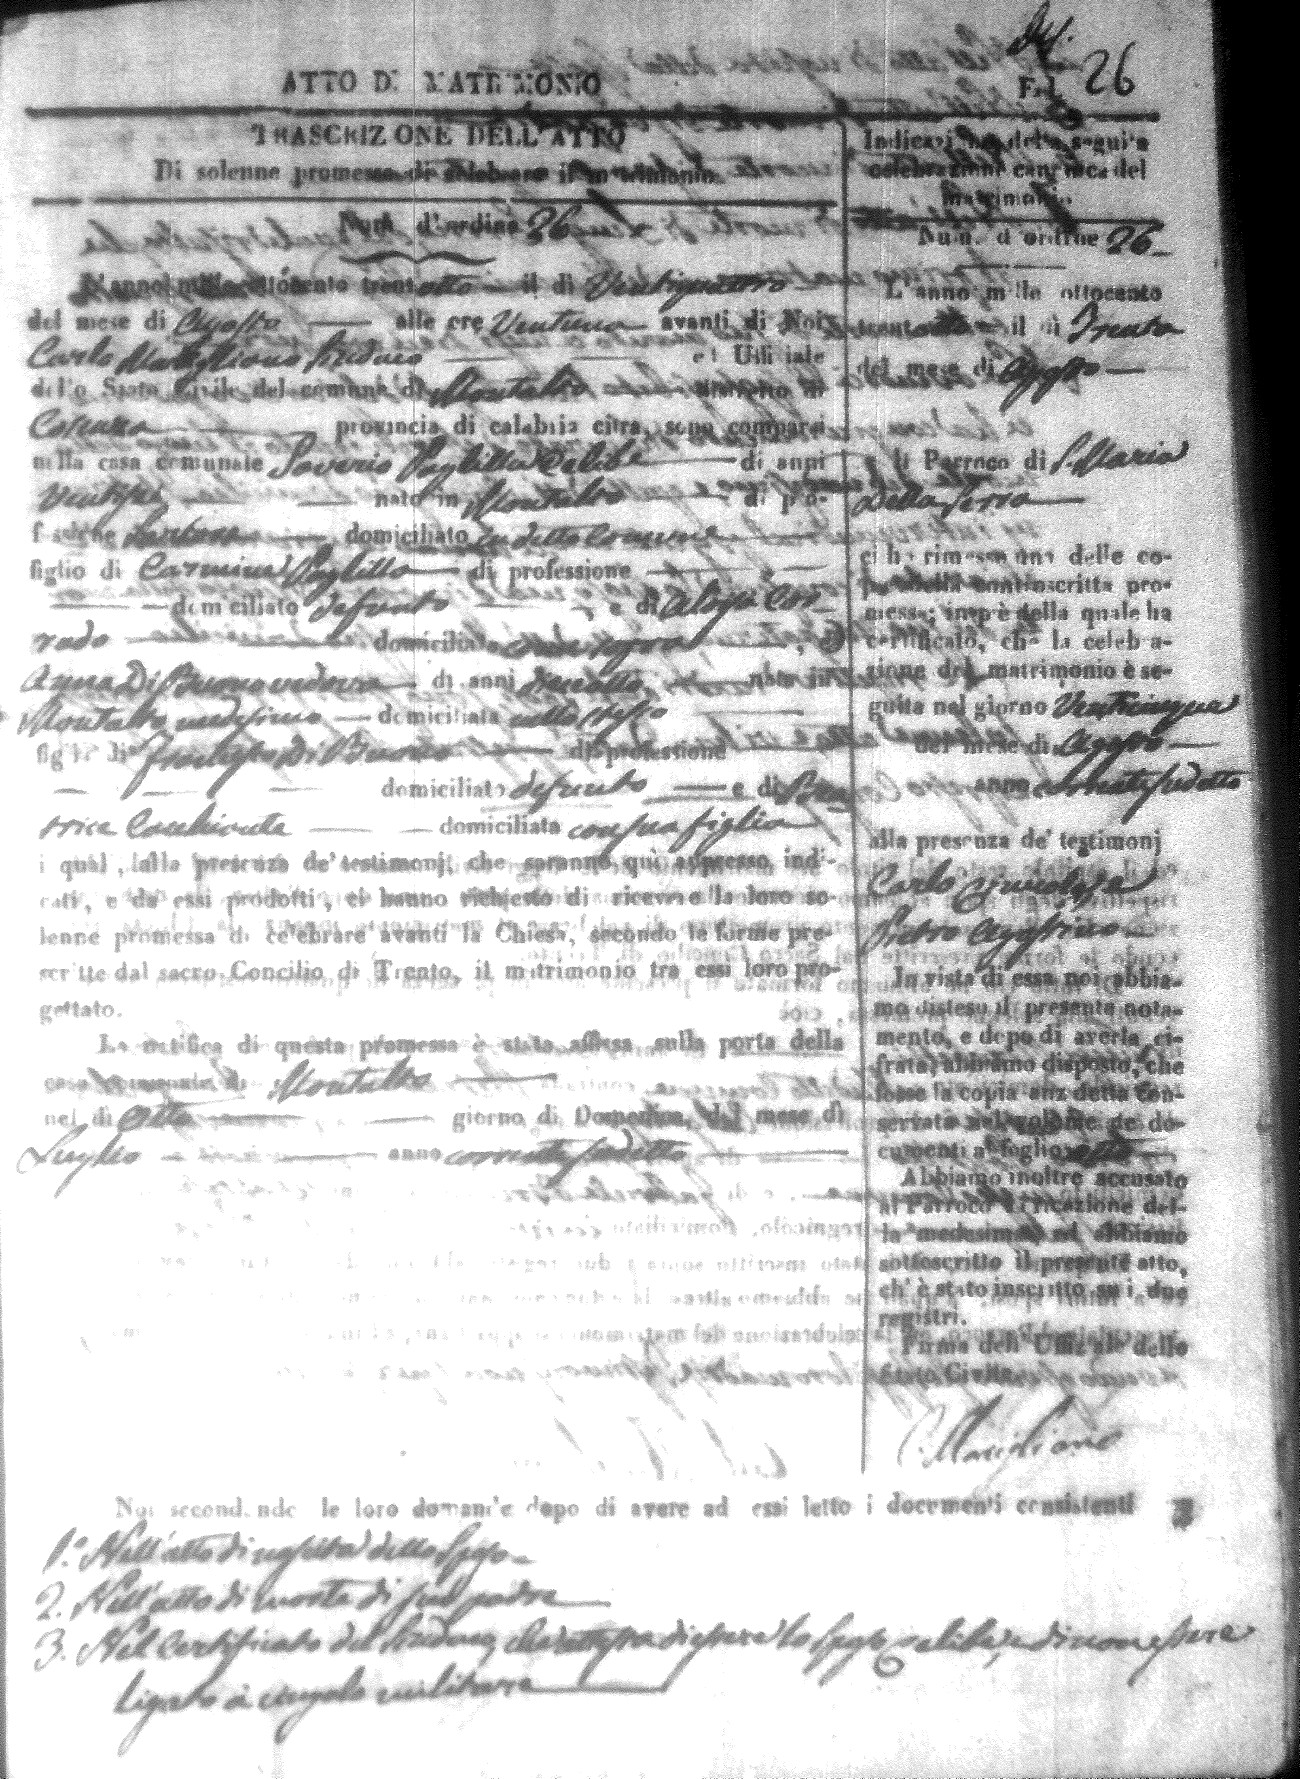 Fol. 26
ATTO DI MATRIMONIO
TRASCRIZIONE DELL'ATTO
Di solenne promessa di celebrare il matrimonio
Num. d'ordine 26
L'anno mille ottocento trentotto il di Ventiquattro
del mese di Agosto alle ore Ventuno avanti di Noi
Carlo Marigliano Sindaco ed Uffiziale
dello Stato Civile del comune di Montalto distretto di
Cosenza provincia di calabria citra, sono comparsi
nella casa comunale Saverio Paglilla celibe di anni
Ventisei nato in Montalto di pro-
fessione domiciliato in detto Comune
figlio di Carmine Paglilla di professione
domiciliato defunto, e di Aloisa Cor-
rado domiciliata, ed
Anna Di Buono vedova di anni nata in
Montalto medesimo domiciliata nello stesso
figlia di Di Buono di professione
domiciliato defunto e di Bea-
trice domiciliata con sua figlia
i quali, alla presenza de' testimonj, che saranno quì appresso indi-
cati, e da essi prodotti, ci hanno richiesto di ricevere la loro so-
lenne promessa di celebrare avanti la Chiesa, secondo le forme pre-
scritte dal sacro Concilio di Trento, il matrimonio tra essi loro pro-
gettato.
La notifica di questa promessa è stata affissa sulla porta della
casa comunale di Montalto
nel dì otto giorno di Domenica, del mese dì
Luglio anno corrente sudetto
Indicazione della seguita
celebrazione canonica del
matrimonio
Num. d'ordine 26
L'anno mille ottocento
trentotto il di Trenta
del mese di Agosto
il Parroco di S. Maria
della Serra
ci ha rimesso una delle co-
pie della controscritta pro-
messa; in piè della quale ha
certificato, che la celebra-
zione del matrimonio è se-
guita nel giorno Venticinque
del mese di Agosto
anno corrente sudetto
alla presenza de' testimonj
Carlo
Pietro Agostino
In vista di essa noi abbia-
mo disteso il presente nota-
mento, e dopo di averla ci-
frata, abbiamo disposto, che
fosse la copia anzidetta con-
servata nel volume de' do-
cumenti al foglio otto
Abbiamo inoltre accusato
al Parroco la ricezione del-
la medesima ed abbiamo
sottoscritto il presente atto,
ch'è stato inscritto su i due
registri.
Firma dell'Uffiziale dello
Stato Civile
C. Marigliano
Noi secondando le loro domande dopo di avere ad essi letto i documenti consistenti
1.º Nell'atto di nascita dello Sposo
2. Nell'atto di morte di suo padre
3. Nel Certificato del Sindaco, che attesta di essere lo Sposo celibe, e di non essere
ligato à cingolo militare